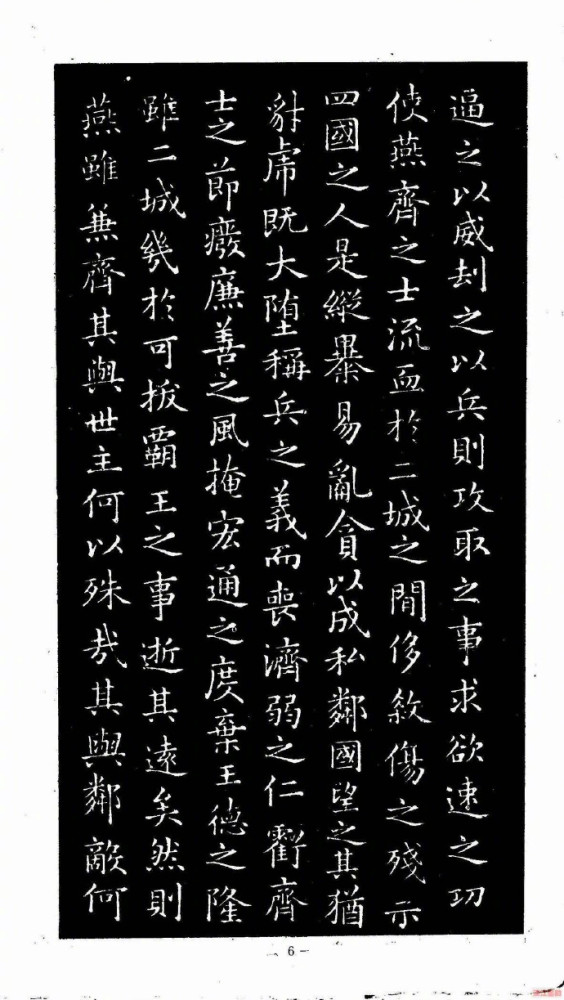 逼之以威劫之以兵則攻取之事求欲速之功
使燕齊之士流血於二城之間侈殺傷之殘示
四國之人是縱暴易亂貪以成私鄰國望之其猶
豺虎既大堕稱兵之義而喪濟弱之仁虧齊
士之節廢廉善之風掩宏通之度棄王德之隆
雖二城幾於可拔霸王之事逝其遠矣然則
燕雖兼齊其與世主何以殊哉其與鄰敵何
6